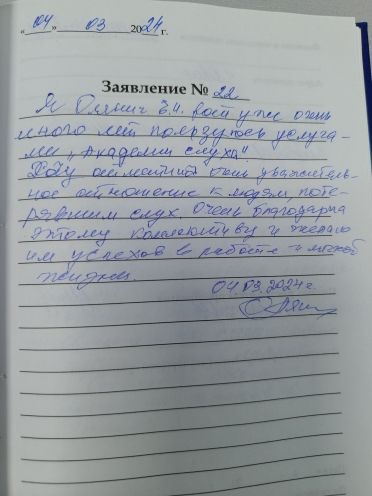 «04» 03 2024 г.
Заявление № 22
Я Олянич Е.И. вот уже очень
много лет пользуюсь услуга-
ми „Академии слуха".
Хочу отметить очень уважитель-
ное отношение к людям, поте-
рявшим слух. Очень благодарна
этому коллективу и желаю
им успехов в работе и личной
жизни.
04.03.2024 г.